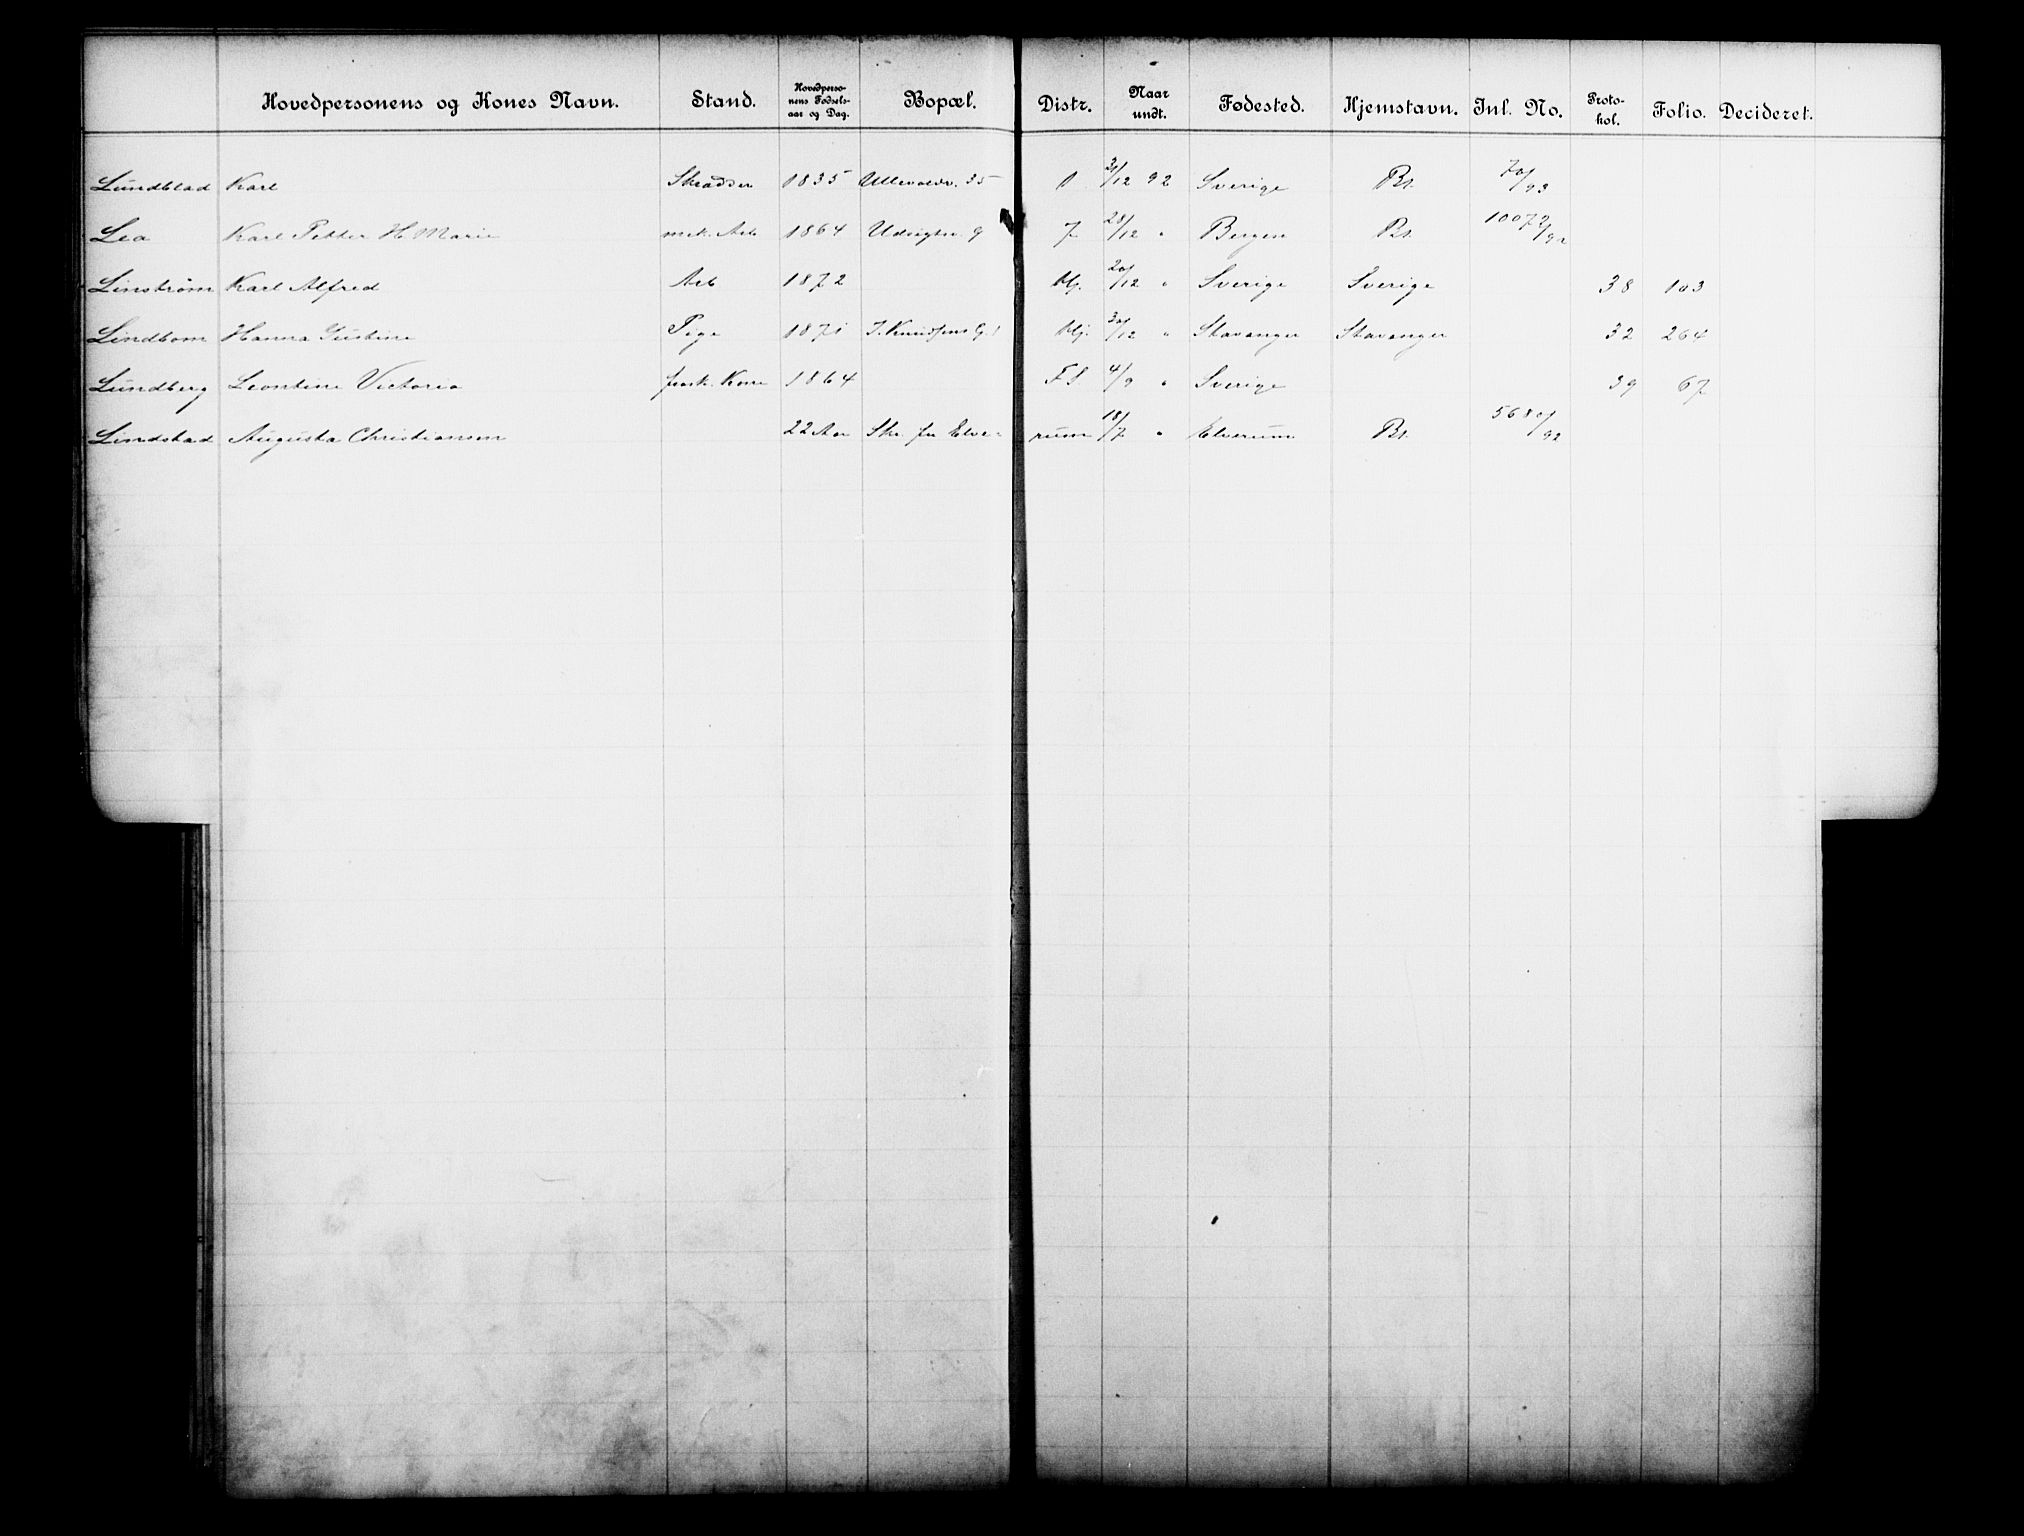 Hovedpersonens og Kones Navn. Stand. Hovedpersonens Fødselsaar og Dag. Bopæl. Distr. Naar undt. Fødested. Hjemstavn. Inl. No. Protokol. Folio. Decideret.
Lundblad Karl Skrædder 1835 Ullevoldsv. 35 1 31/12 92 Sverige Bt. 70/93
Lea Karl Petter H. Marie mek. Arb 1864 Udsigten 9 7 28/12 " Bergen Bt. 10072/92
Linstrøm Karl Alfred Arb 1872 Hj. 20/12 " Sverige Sverige 38 103
Lindbom Hanna Gustine Pige 1871 J. Knudsens G. 1 Hj. 30/12 " Stavanger Stavanger 32 264
Lundberg Leontine Victoria frask. Kone 1864 FS 4/9 " Sverige 39 67
Lindstad Augusta Christiansen 22 Aar Skr. fra Elve- rum 18/7 " Elverum Bt. 5680/92